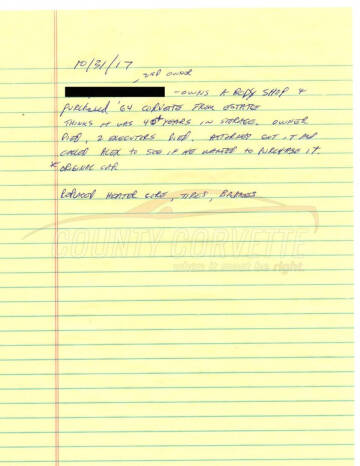 10/31/17
2ND OWNER
- OWNS A BODY SHOP &
PURCHASED '64 CORVETTE FROM ESTATE
THINKS IT WAS 40+ YEARS IN STORAGE. OWNER
DIED, 2 EXECUTORS DIED. ATTORNEY GOT IT AND
CALLED ALEX TO SEE IF HE WANTED TO PURCHASE IT.
* ORIGINAL CAR
REPLACED HEATER CORE, TIRES, BRAKES
COUNTY CORVETTE
when it must be right.